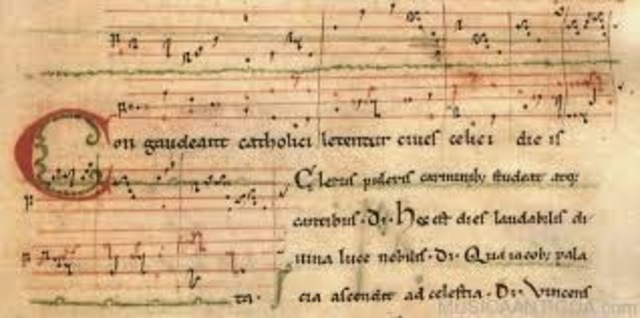 Congaudeant catholici letentur ciues celici die is
Clerus pulcris carminibus studeat atque
cantibus · Di · Hec est dies laudabilis di
uina luce nobilis · Di · Qua iacobus pala
ta · cia ascendit ad celestia · Di · Vincens
MUSICAANTIGUA.com